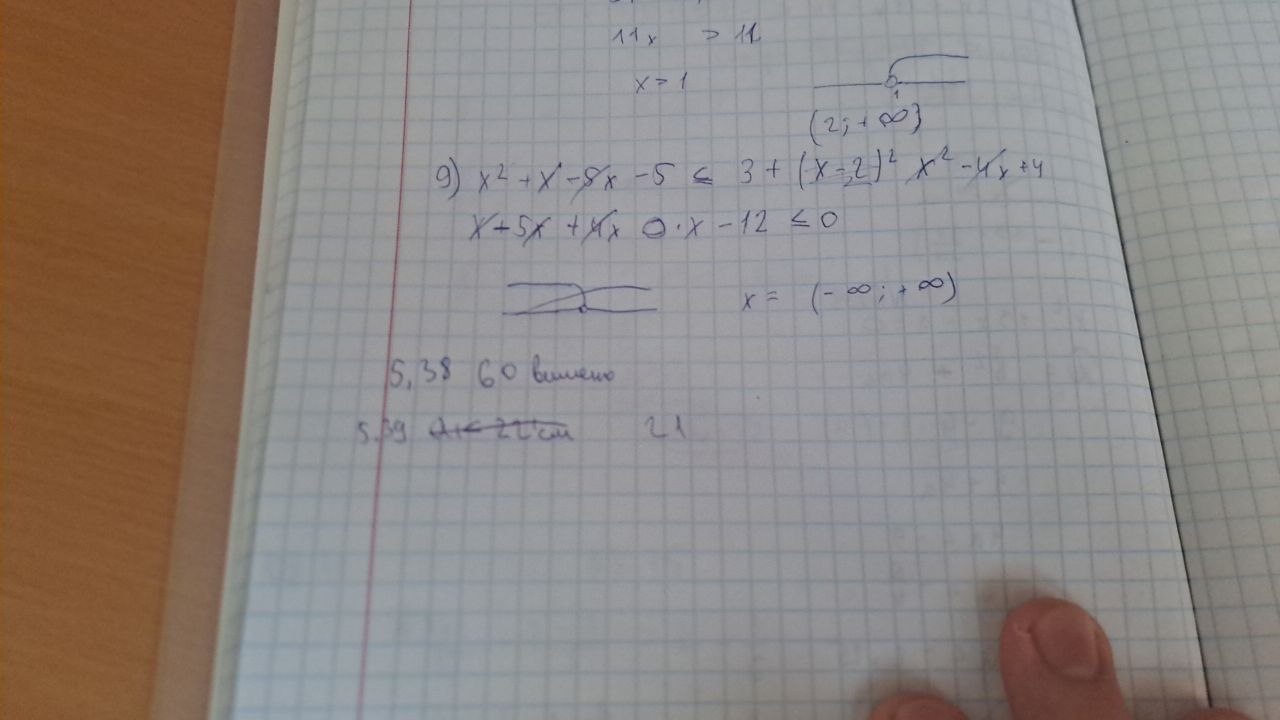 11x > 11
x > 1
1
(2; + ∞)
9) x² + x - 5x - 5 ≤ 3 + (x - 2)² x² - 4x + 4
x + 5x + 4x 0·x - 12 ≤ 0
x = (- ∞; + ∞)
5,38 60
5.39 22 см 21